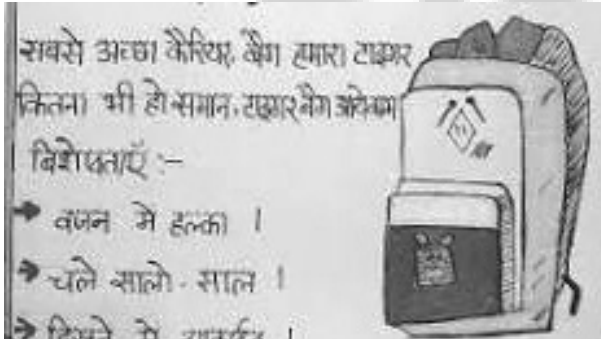 सबसे अच्छा कैरियर बैग हमारा टाइगर
कितना भी हो समान, टाइगर बैग आयेकाम
विशेषताएँ :-
→ वजन मे हल्का ।
→ चले सालो-साल ।
→ दिखने मे आकर्षक ।